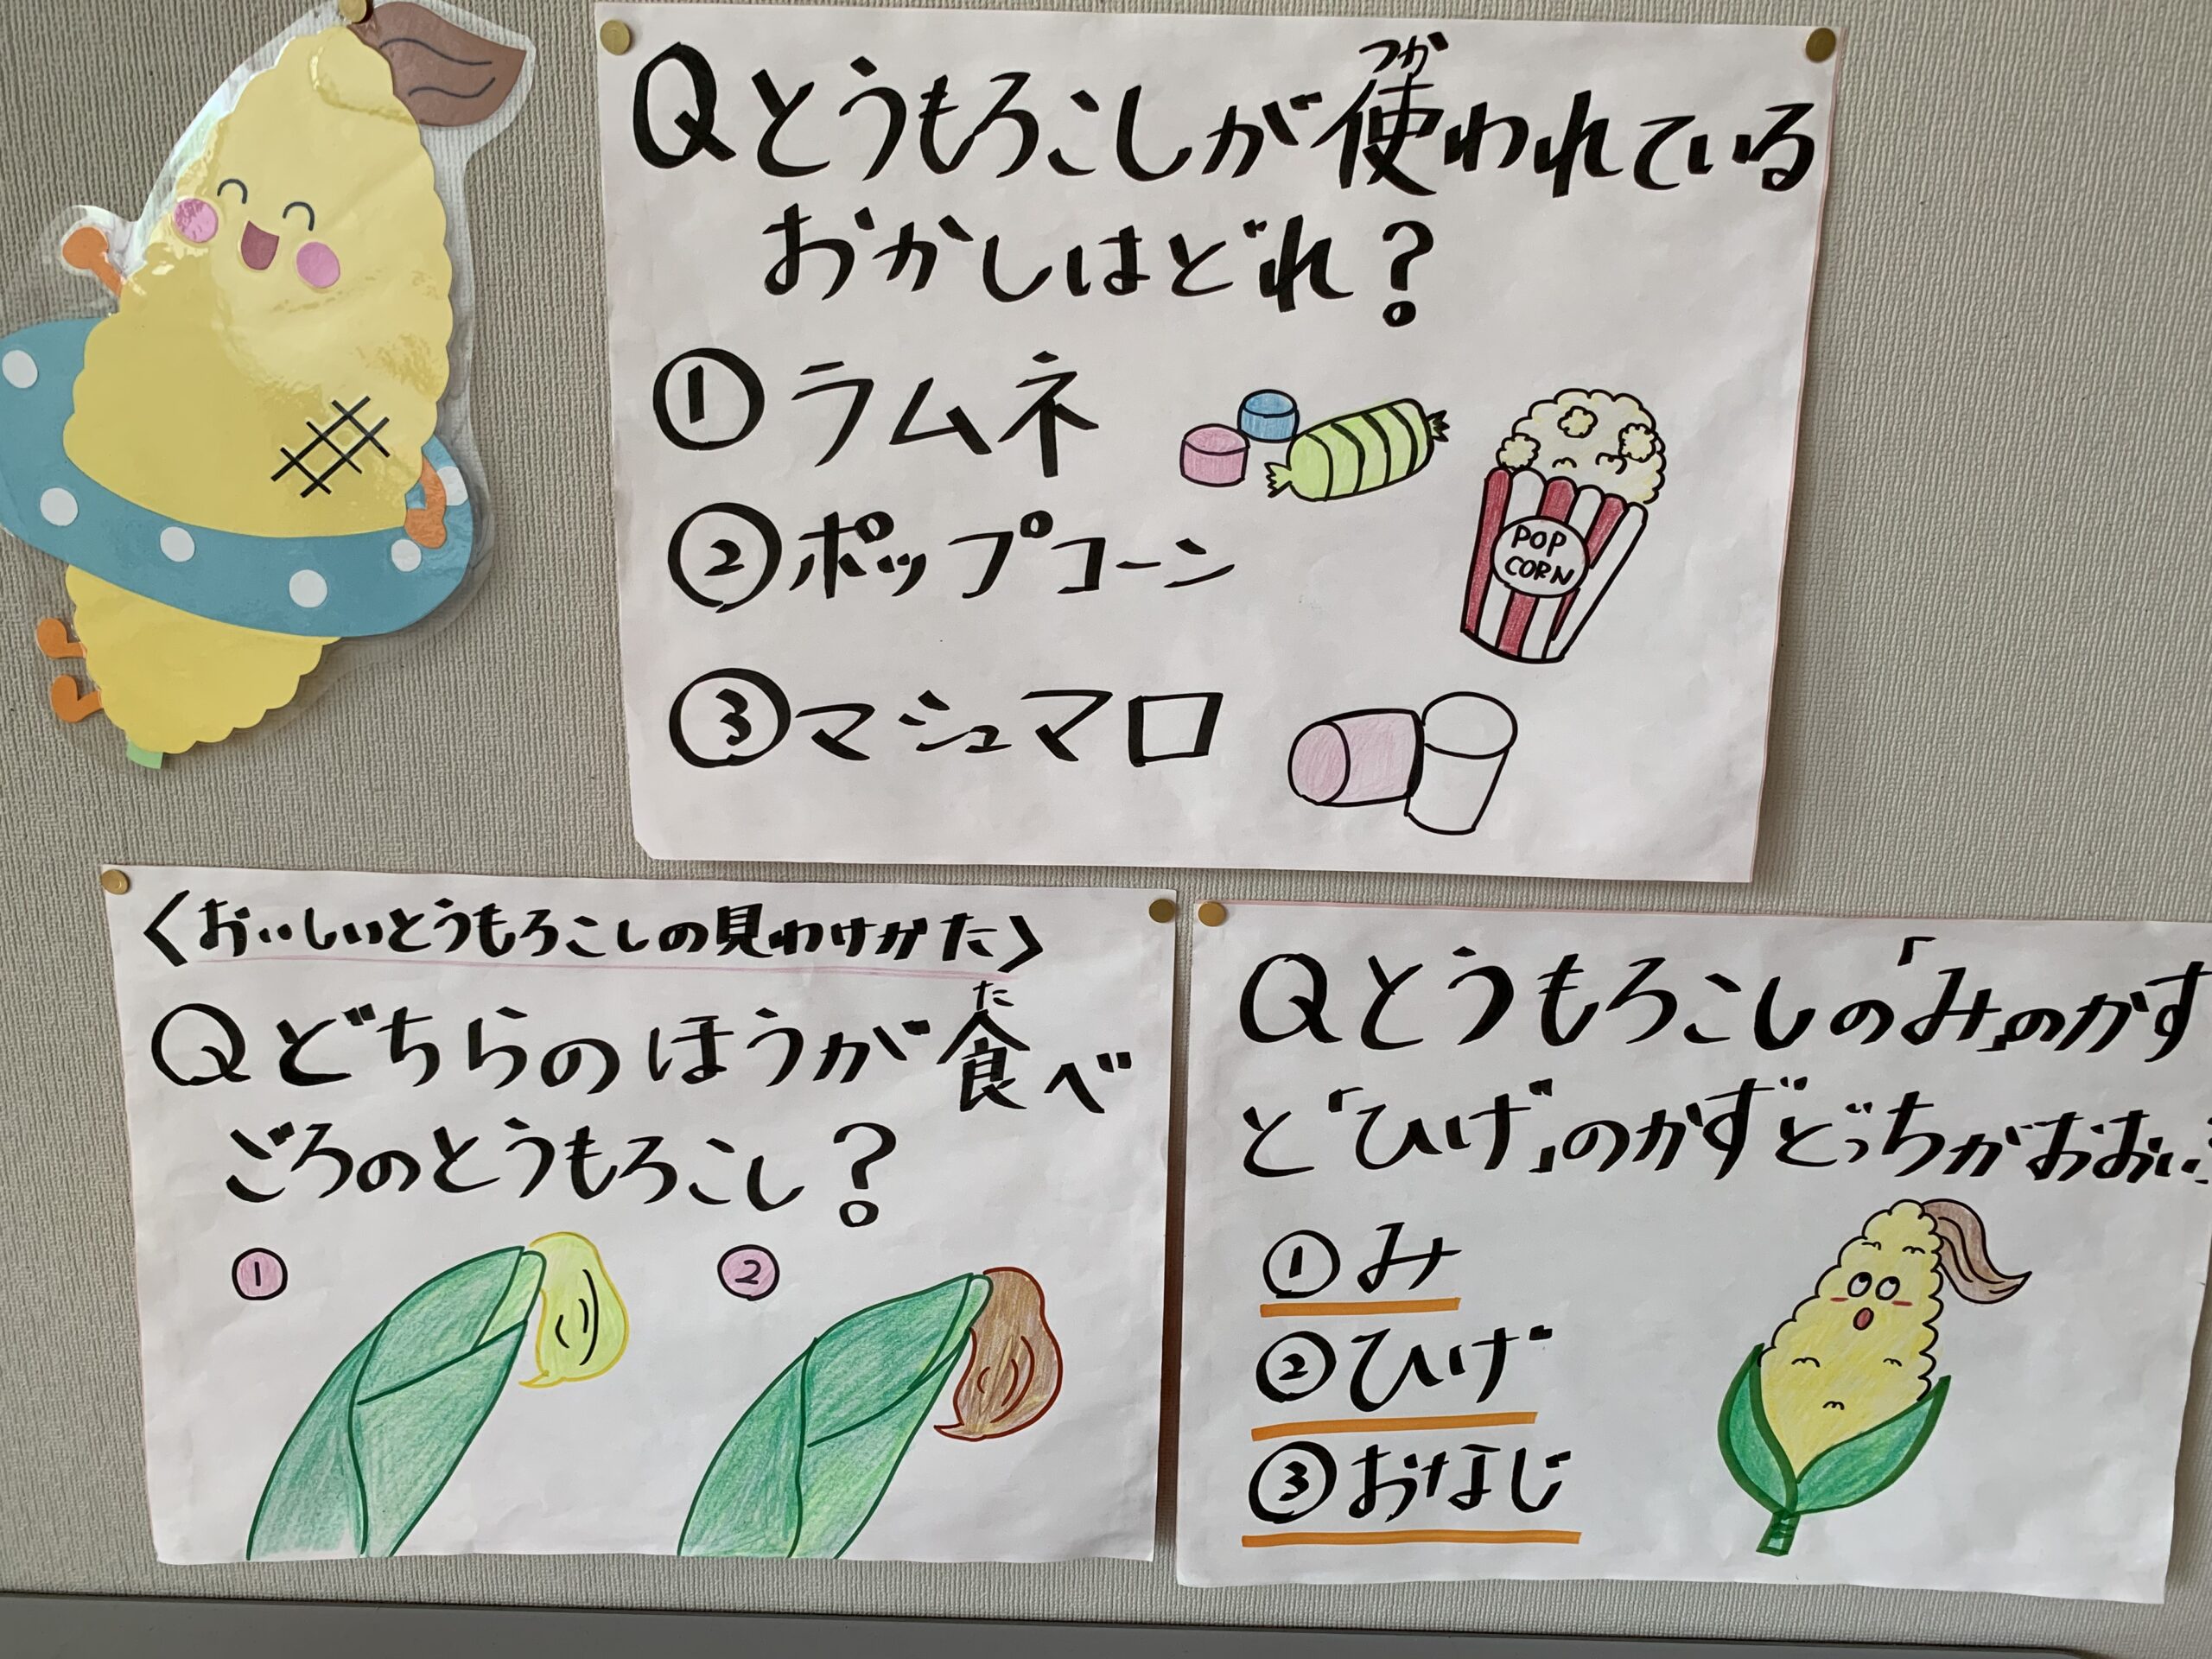 Qとうもろこしが使われている
つか
おかしはどれ?
①ラムネ
②ポップコーン
③マシュマロ
POP
CORN
〈おいしいとうもろこしの見わけかた〉
Qどちらのほうが食べ
た
ごろのとうもろこし?
①
②
Qとうもろこしの「み」のかず
と「ひげ」のかずどっちがおおい
①み
②ひげ
③おなじ